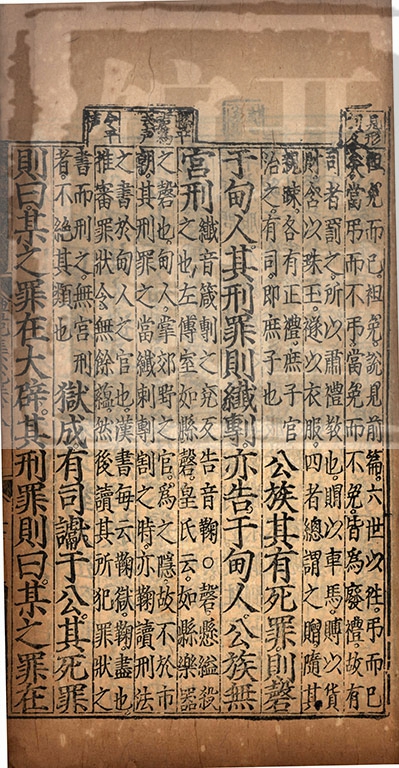 袒免而已袒免說見前篇六世以往弔而已
矣當弔而不弔當免而不免皆為廢禮故有
司者罰之所以肅禮敎也賵以車馬賻以貨
財含以珠玉襚以衣服四者總謂之贈隨其
親踈各有正禮庶子官
治之有司即庶子也
公族其有死罪則磬
于甸人其刑罪則纖剸亦告于甸人公族無
宮刑
纖音箴剸之兖反告音鞠○磬懸縊殺
之也左傳室如縣磬皇氏云如縣樂器
之磬也甸人掌郊野之官為之隱故不於市
朝其刑罪之當纖刺剸割之時亦鞠讀刑法
之書於甸人之官也漢書每云鞠獄鞠盡也
推審罪狀令無餘蘊然後讀其所犯罪狀之
書而刑之無宮刑
者不絕其類也
獄成有司讞于公其死罪
則曰某之罪在大辟其刑罪則曰某之罪在